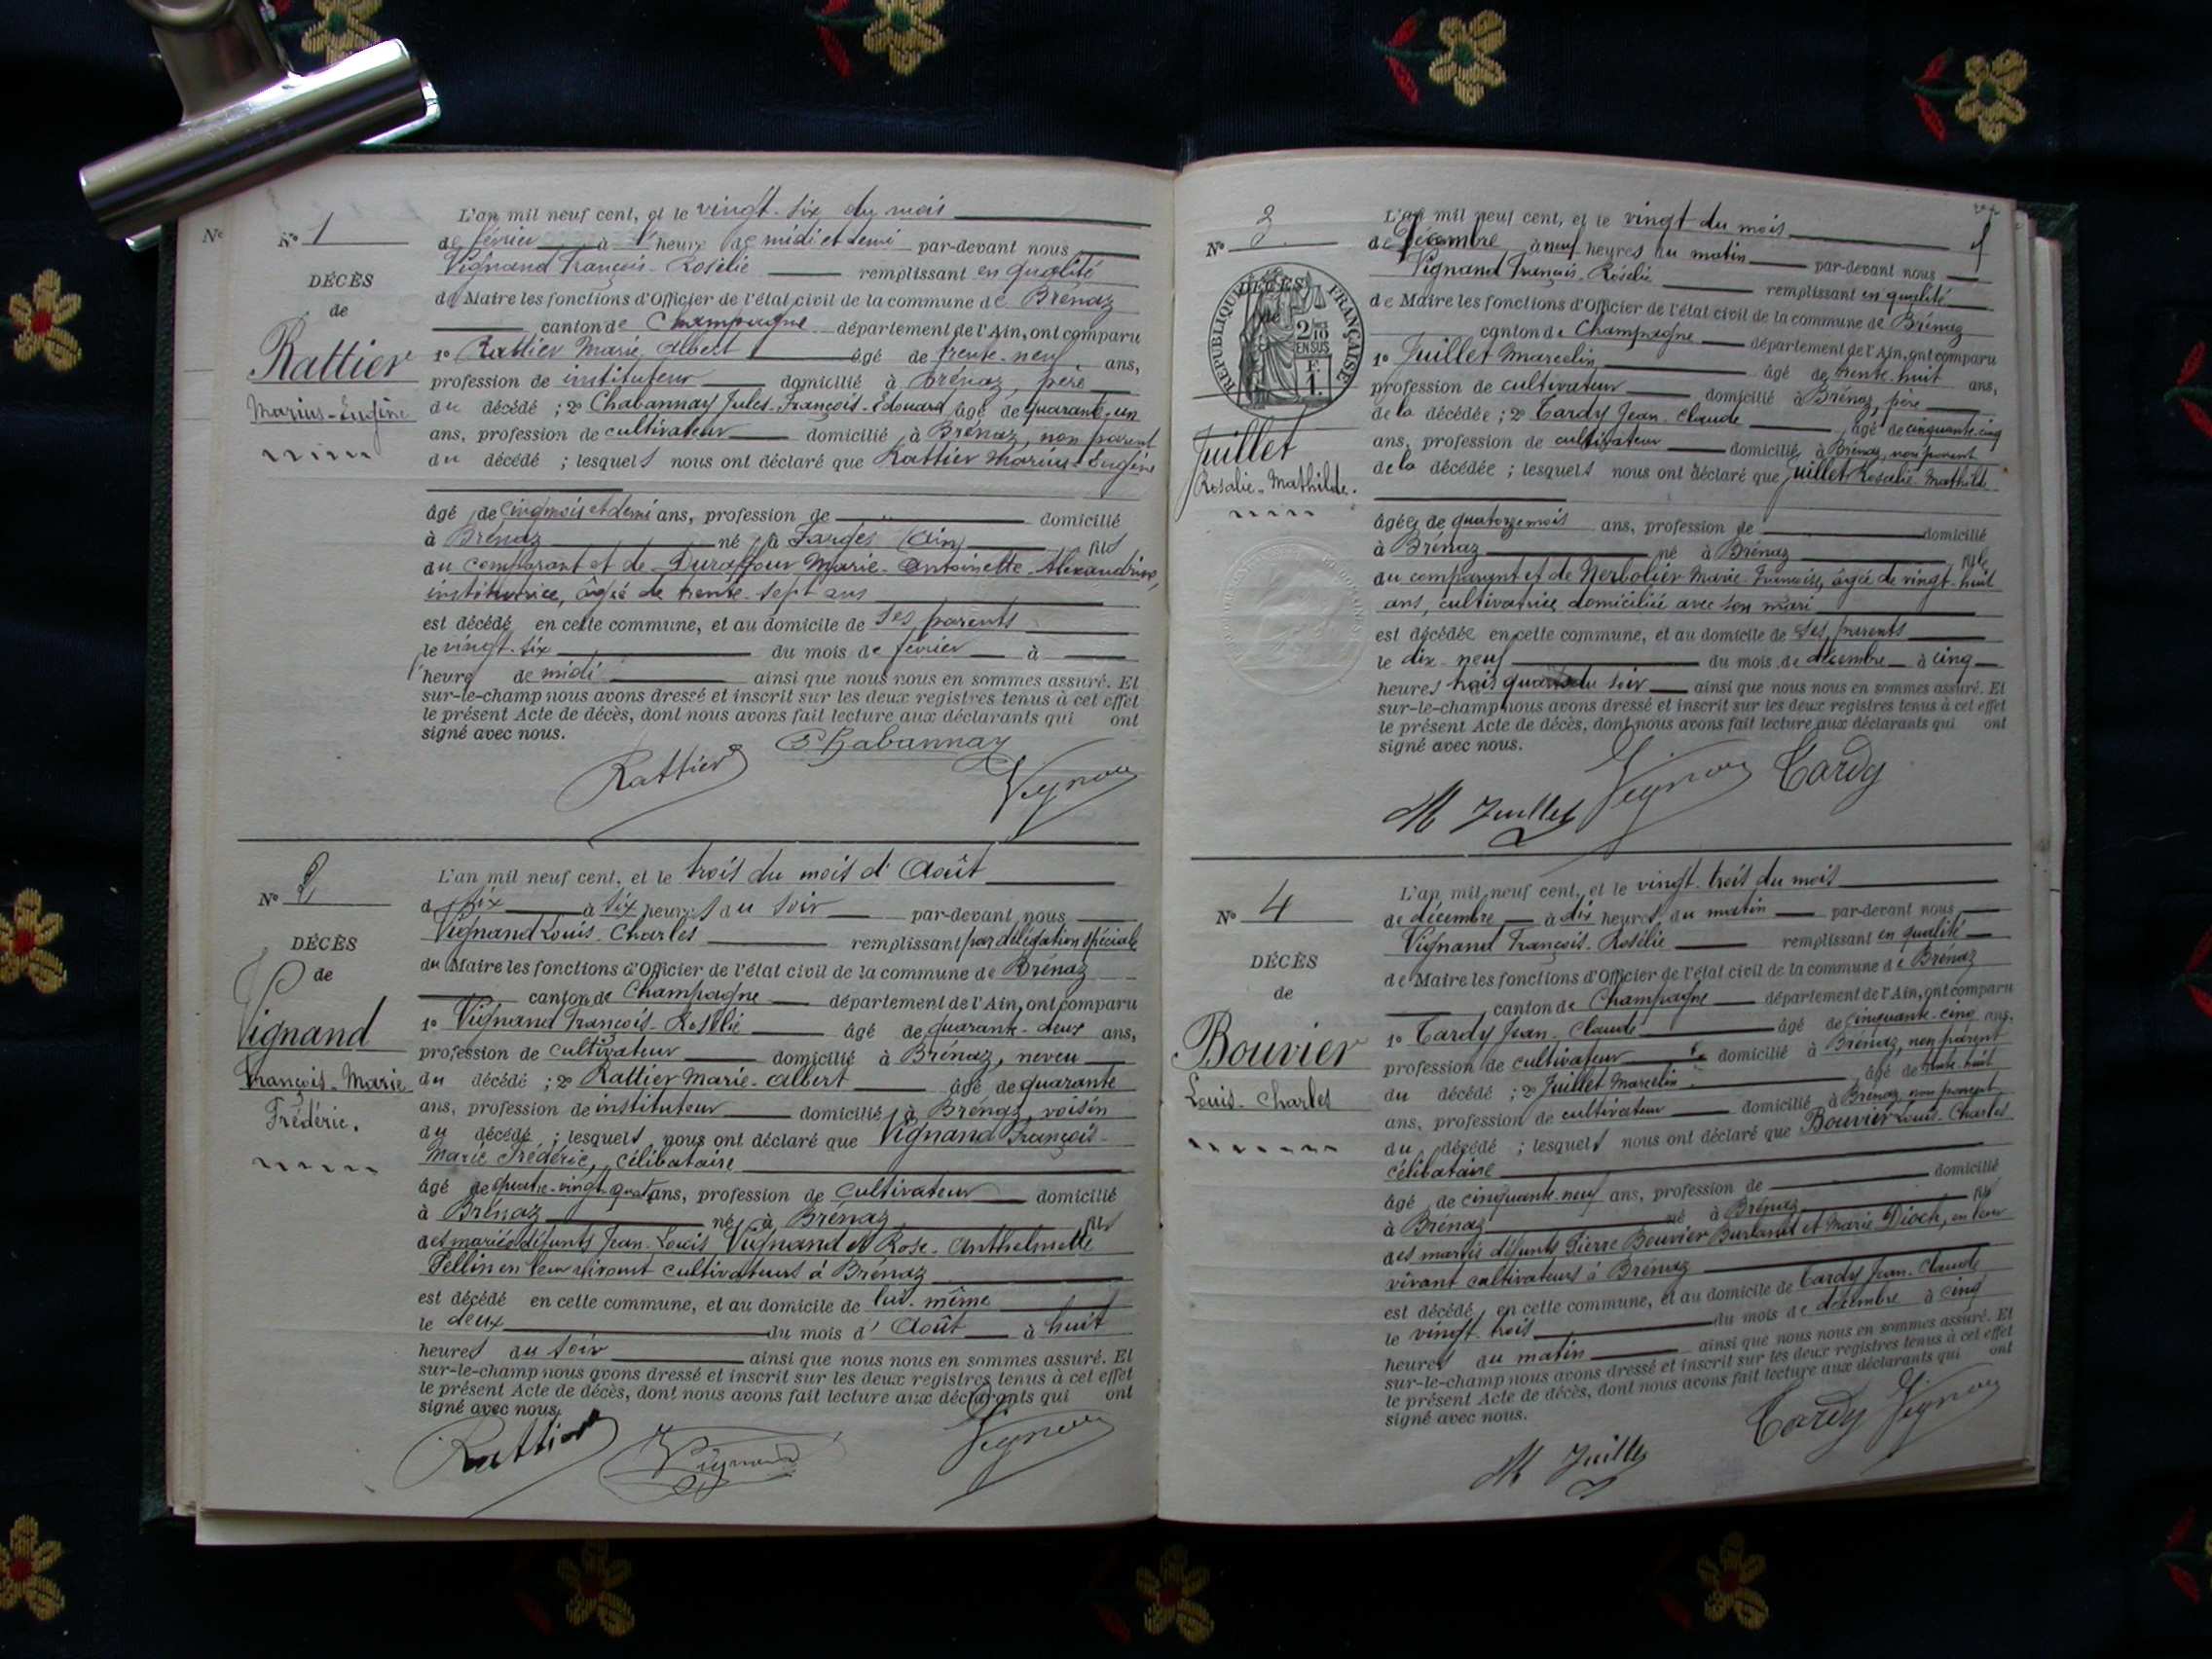 N°
N° 1
DÉCÈS
de
Rattier
Marius-Eugène
L'an mil neuf cent, et le vingt-six du mois
de février à heure de midi et demi par-devant nous
Vignand François-Rosélie remplissant en qualité
de Maire les fonctions d'Officier de l'état civil de la commune de Brénaz
canton de Champagne département de l'Ain, ont comparu
1° Rattier Marie Albert âgé de trente-neuf ans,
profession de instituteur domicilié à Brénaz, père
du décédé ; 2° Chabannay Jules-François-Edouard âgé de quarante-un
ans, profession de cultivateur domicilié à Brénaz, non parent
du décédé ; lesquels nous ont déclaré que Rattier Marius-Eugène
âgé de cinq mois et demi ans, profession de domicilié
à Brénaz né à (Ain) fils
du comparant et de Durafour Marie-Antoinette-Alexandrine,
institutrice, âgée de trente-sept ans
est décédé en cette commune, et au domicile de ses parents
le vingt-six du mois de février à
heure de midi ainsi que nous nous en sommes assuré. Et
sur-le-champ nous avons dressé et inscrit sur les deux registres tenus à cet effet
le présent Acte de décès, dont nous avons fait lecture aux déclarants qui ont
signé avec nous.
Chabannay
Rattier
N° 2
DÉCÈS
de
Vignand
François-Marie
Frédéric.
L'an mil neuf cent, et le trois du mois d'Août
à six heures du soir par-devant nous
Vignand Louis-Charles remplissant par délégation spéciale
du Maire les fonctions d'Officier de l'état civil de la commune de Brénaz
canton de Champagne département de l'Ain, ont comparu
1° Vignand François-Rosélie âgé de quarante-deux ans,
profession de cultivateur domicilié à Brénaz, neveu
du décédé ; 2° Rattier Marie-Albert âgé de quarante
ans, profession de instituteur domicilié à Brénaz, voisin
du décédé ; lesquels nous ont déclaré que Vignand François-
Marie Frédéric, célibataire
âgé de quatre-vingt-quatre ans, profession de cultivateur domicilié
à Brénaz né à Brénaz fils
des mariés défunts Jean-Louis Vignand et Rose-Anthelmette
Pellin en leur vivant cultivateurs à Brénaz
est décédé en cette commune, et au domicile de lui-même
le deux du mois d'Août à huit
heures du soir ainsi que nous nous en sommes assuré. Et
sur-le-champ nous avons dressé et inscrit sur les deux registres tenus à cet effet
le présent Acte de décès, dont nous avons fait lecture aux déclarants qui ont
signé avec nous.
Rattier Vignand
N° 3
DÉCÈS
RÉPUBLIQUE FRANÇAISE
2/10
EN SUS
F.
1.
Juillet
Rosalie-Mathilde.
L'an mil neuf cent, et le vingt du mois
de Décembre à neuf heures du matin par-devant nous
Vignand François-Rosélie remplissant en qualité
de Maire les fonctions d'Officier de l'état civil de la commune de Brénaz
canton de Champagne département de l'Ain, ont comparu
1° Juillet Marcelin âgé de trente-huit ans,
profession de cultivateur domicilié à Brénaz, père
de la décédée ; 2° Tardy Jean-Claude âgé de cinquante-cinq
ans, profession de cultivateur domicilié à Brénaz, non parent
de la décédée ; lesquels nous ont déclaré que Juillet Rosalie-Mathilde
âgée de quatorze mois ans, profession de domicilié
à Brénaz né à Brénaz fille
du comparant et de Nerbolier Marie-Françoise, âgée de vingt-huit
ans, cultivatrice domiciliée avec son mari
est décédée en cette commune, et au domicile de ses parents
le dix-neuf du mois de décembre à cinq
heures trois quarts du soir ainsi que nous nous en sommes assuré. Et
sur-le-champ nous avons dressé et inscrit sur les deux registres tenus à cet effet
le présent Acte de décès, dont nous avons fait lecture aux déclarants qui ont
signé avec nous.
M Juillet Tardy
N° 4
DÉCÈS
de
Bouvier
Louis-Charles
L'an mil neuf cent, et le vingt-trois du mois
de décembre à dix heures du matin par-devant nous
Vignand François-Rosélie remplissant en qualité
de Maire les fonctions d'Officier de l'état civil de la commune de Brénaz
canton de Champagne département de l'Ain, ont comparu
1° Tardy Jean-Claude âgé de cinquante-cinq ans,
profession de cultivateur domicilié à Brénaz, non parent
du décédé ; 2° Juillet Marcelin âgé de trente-huit
ans, profession de cultivateur domicilié à Brénaz, non parent
du décédé ; lesquels nous ont déclaré que Bouvier Louis-Charles
célibataire
âgé de cinquante-neuf ans, profession de domicilié
à Brénaz né à Brénaz fils
des mariés défunts Pierre Bouvier et Marie Dioch, en leur
vivant cultivateurs à Brénaz
est décédé en cette commune, et au domicile de Tardy Jean-Claude
le vingt-trois du mois de décembre à cinq
heures du matin ainsi que nous nous en sommes assuré. Et
sur-le-champ nous avons dressé et inscrit sur les deux registres tenus à cet effet
le présent Acte de décès, dont nous avons fait lecture aux déclarants qui ont
signé avec nous.
Tardy
M Juillet